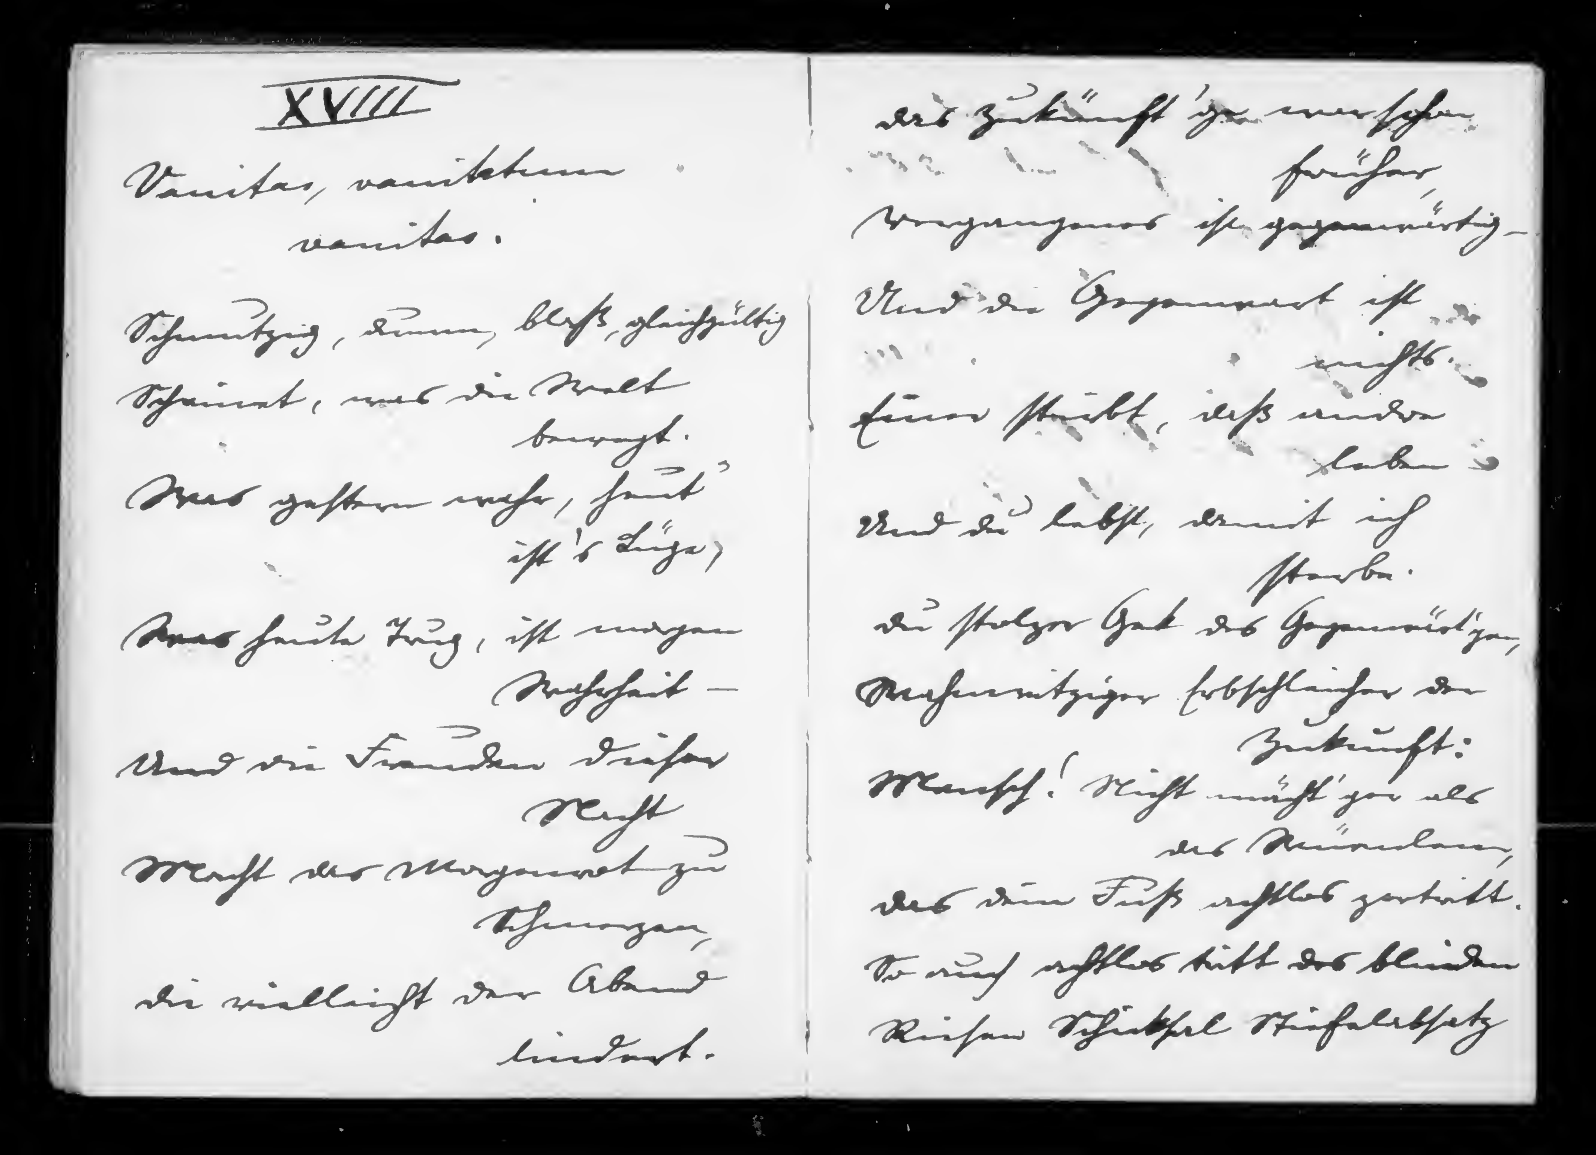 XVIII
Vanitas, vanitatum
vanitas.
Schmutzig, dumm, blaß, gleichgültig
Scheinet, was die Welt
bewegt.
Was gestern wahr, heut
ist's Lüge,
Was heute Trug, ist morgen
Wahrheit –
Und die Freuden dieser
Nacht
Macht das Morgenrot zu
Schmerzen,
die vielleicht der Abend
lindert.
das Zukünft'ge war schon
früher,
Vergangenes ist gegenwärtig –
Und die Gegenwart ist
nichts.
Einer stirbt, daß andre
leben
Und du lebst, damit ich
sterbe.
du stolzer Gek des Gegenwärt'gen,
Wahnwitziger Erbschleicher der
Zukunft:
Mensch! Nicht mächt'ger als
das Würmlein,
das dein Fuß achtlos zertritt.
So auch achtlos tritt des blinden
Riesen Schicksal Stiefelabsatz